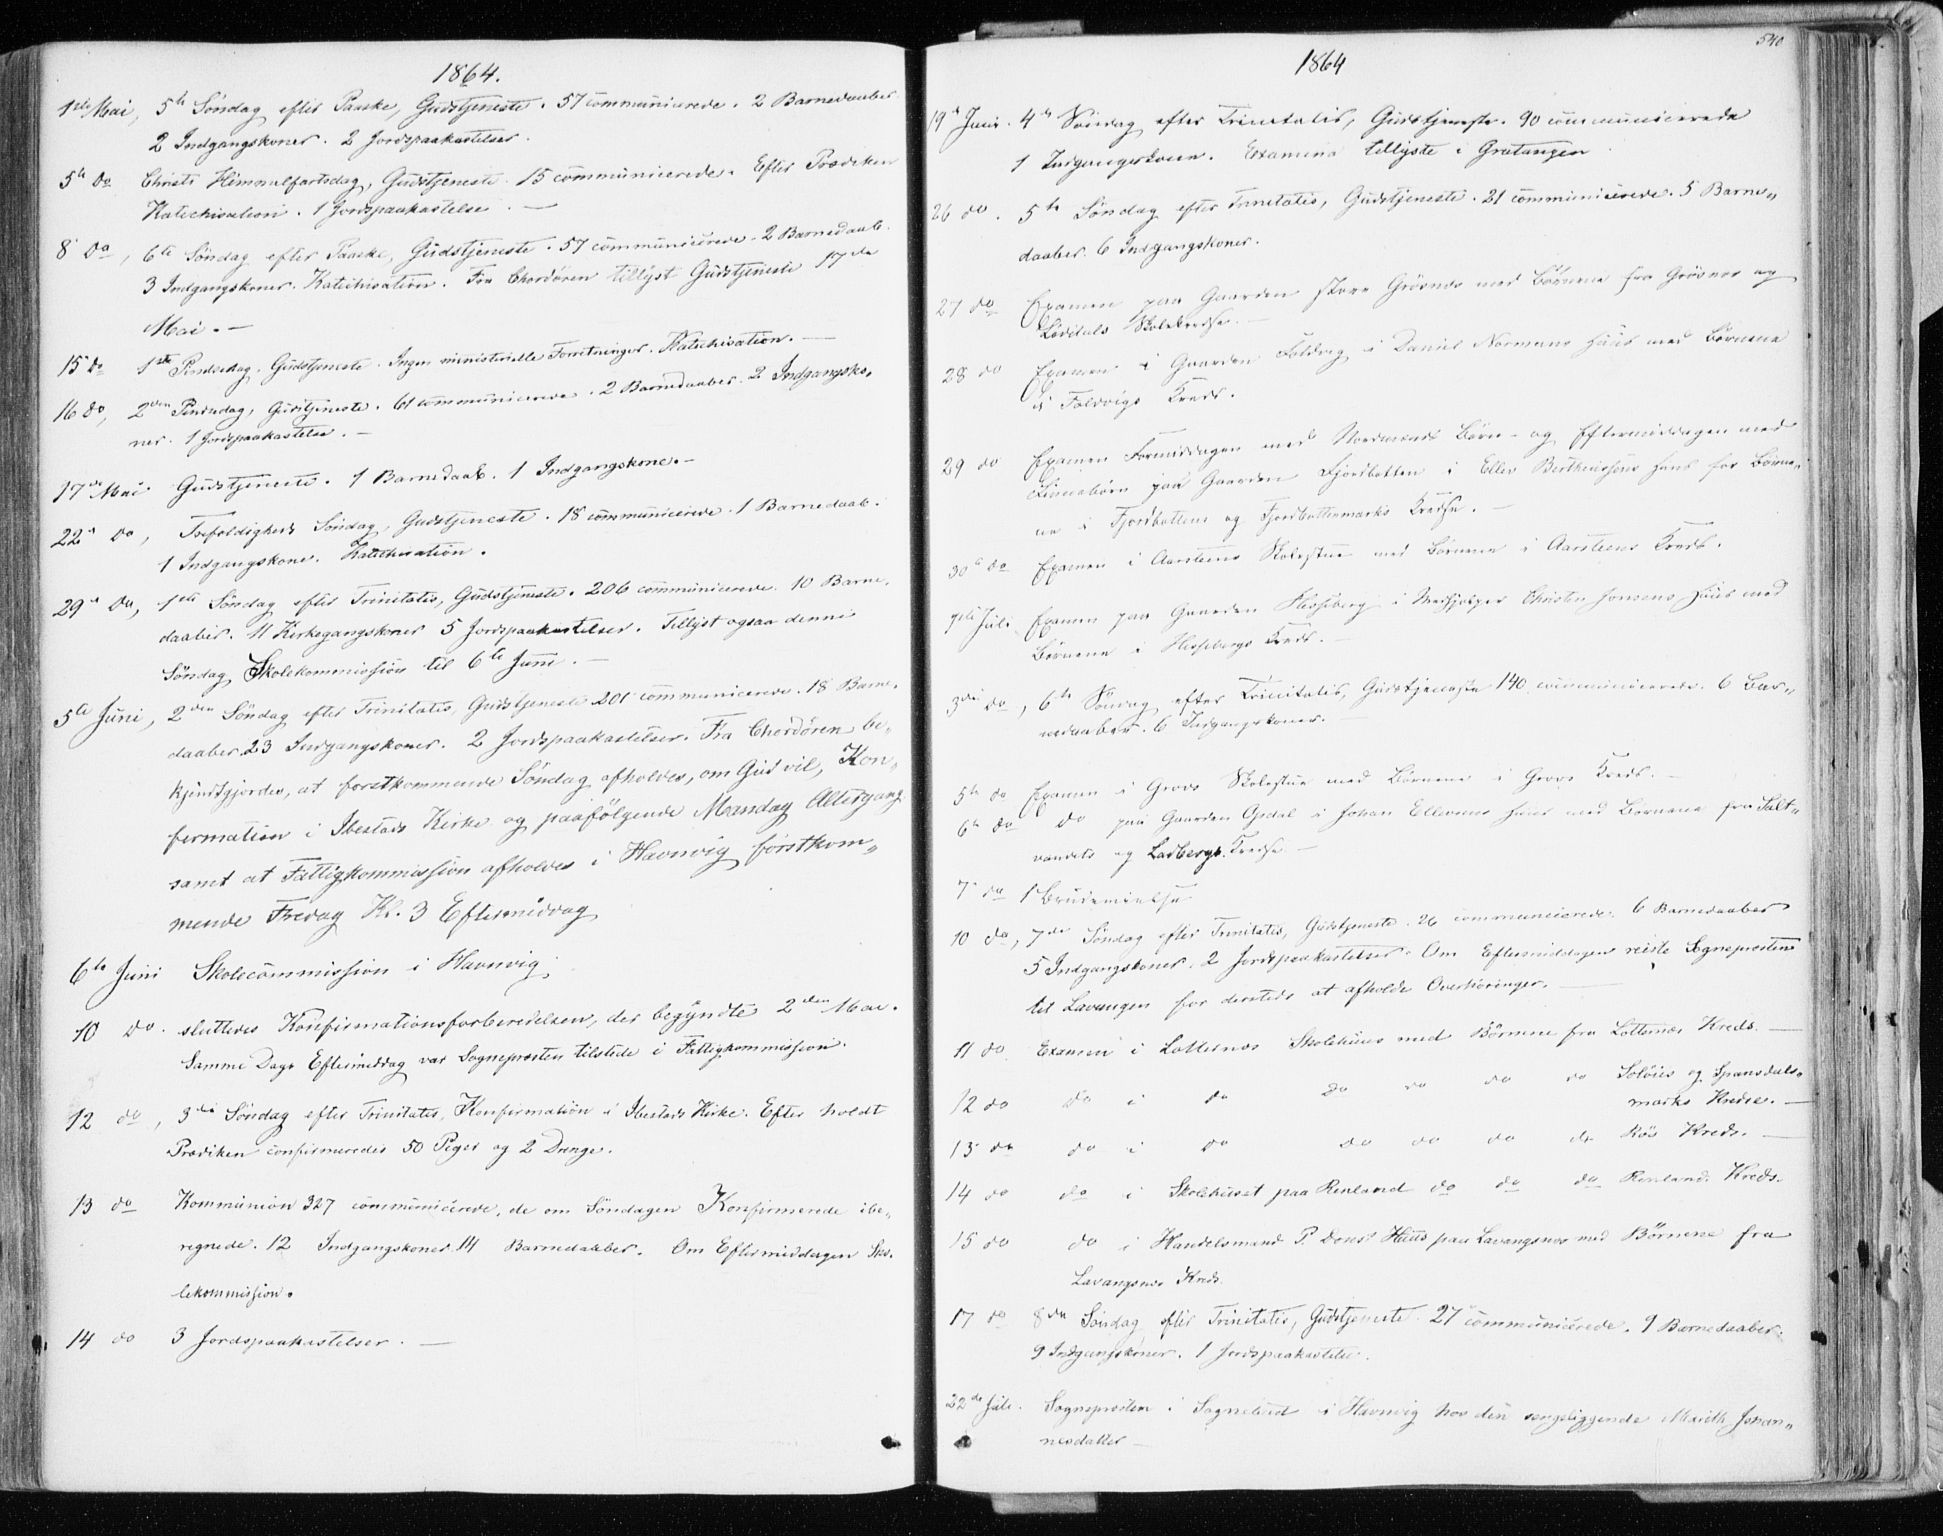 1864.
1ste Mai, 5te Søndag efter Paaske, Gudstjeneste. 57 communicerede. 2 Barnedaaber
2 Indgangskoner. 2 Jordspaakastelser.
5te do Christi Himmelfartsdag, Gudstjeneste. 15 communicerede. Efter Prædiken
Katechisation. 1 Jordspaakastelse. —
8 do, 6te Søndag efter Paaske, Gudstjeneste. 57 communicerede. 2 Barnedaab.
3 Indgangskoner. Katechisation. Fra Chordøren tillyst Gudstjeneste 17de
Mai. —
15 do 1ste Pindsedag. Gudstjeneste. Ingen ministerielle Forretninger. Katechisation. —
16 do, 2den Pindsedag, Gudstjeneste. 61 communicerede. 2 Barnedaaber. 2 Indgangsko-
ner. 1 Jordspaakastelse. —
17de Mai Gudstjeneste. 1 Barnedaab. 1 Indgangskone. —
22 do, Trefoldigheds Søndag, Gudstjeneste. 18 communicerede. 1 Barnedaab.
1 Indgangskone. Katechisation.
29 do, 1ste Søndag efter Trinitatis, Gudstjeneste. 206 communicerede. 10 Barne-
daaber. 11 Kirkegangskoner 5 Jordspaakastelser. Tillyst ogsaa denne
Søndag Skolekommission til 6te Juni. —
5te Juni, 2den Søndag efter Trinitatis, Gudstjeneste 201 communicerede. 18 Barne-
daaber 23 Indgangskoner. 2 Jordspaakastelser. Fra Chordøren be-
kjendtgjordes, at førstkommende Søndag afholdes, om Gud vil, Kon-
firmation i Ibestads Kirke og paafølgende Mandag Altergang
samt at Fattigkommission afholdes i Havnvig førstkom-
mende Fredag Kl. 3 Eftermiddag
6te Juni Skolecommission i Havnvig.
10 do. sluttedes Konfirmationsforberedelsen, der begyndte 2den Mai.
Samme Dags Eftermiddag var Sognepresten tilstede i Fattigkommission.
12 do, 3die Søndag efter Trinitatis, Konfirmation i Ibestads Kirke. Efter holdt
Prædiken confirmeredes 50 Piger og 2 Drenge.
13 do Kommunion 327 communicerede, de om Søndagen Konfirmerede ibe-
regnede. 12 Indgangskoner 14 Barnedaaber. Om Eftermiddagen Sko-
lekommission.
14 do 3 Jordspaakastelser. —
540
1864
19de Juni. 4de Søndag efter Trinitatis, Gudstjeneste. 90 communicerede
1 Indgangskone. Examina tillyste i Gratangen
26 do. 5te Søndag efter Trinitatis, Gudstjeneste. 21 communicerede. 5 Barne-
daaber. 6 Indgangskoner.
27 do Examen paa Gaarden store Grøsnæs med Børnene fra Grøsnes og
Skolekredse. —
28 do Examen i Gaarden Foldvig i Daniel Normans Huus med Børnene
i Foldvigs Kreds.
29 do Examen Formiddagen med Nordmænds Børn- og Eftermiddagen med
Finnebørn paa Gaarden Fjordbotten i Ellev Bertheussens Huus for Børne-
ne i Fjordbottens og Fjordbottenmarks Kredse. —
30 do Examen i Aarsteens Skolestue med Børnene i Aarsteens Kreds.
1ste Juli Examen paa Gaarden Hesseberg i Christen Jonsens Huus med
Børnene i Hessebergs Kreds. —
3die do, 6te Søndag efter Trinitatis, Gudstjeneste 140 communicerede. 6 Bar-
nedaaber. 6 Indgangskoner. —
5te do Examen i Grovs Skolestue med Børnene i Grovs Kreds. —
6te do do paa Gaarden Opdal i Johan Ellevsens Huus med Børnene fra Salt-
vandets og Ladbergs Kredse —
7 do 1 Brudevielse
10 do, 7de Søndag efter Trinitatis, Gudstjeneste. 26 communicerede. 6 Barnedaaber
5 Indgangskoner. 2 Jordspaakastelser. Om Eftermiddagen reiste Sognepresten
til Lavangen for dersteds at afholde Overhøringer. —
11 do Examen i Lottesnæs Skolehuus med Børnene fra Lottenæs Kreds. —
12 do do i do do do do do Soløiés og Spansdals-
marks Kredse. —
13 do do i do do do do do Røs Kreds. —
14 do do i Skolehuset paa Renland do do do Renlands Kreds.
15 do do i Handelsmand P. Dons' Huus paa Lavangsnes med Børnene fra
Lavangsnes Kreds.
17 do 8de Søndag efter Trinitatis, Gudstjeneste. 27 communicerede. 9 Barnedaaber.
9 Indgangskoner. 1 Jordspaakastelse.
22de Juli. Sognepresten i Sognebud i Havnvig hos den sengeliggende Mareth Johan-
nesdatter —